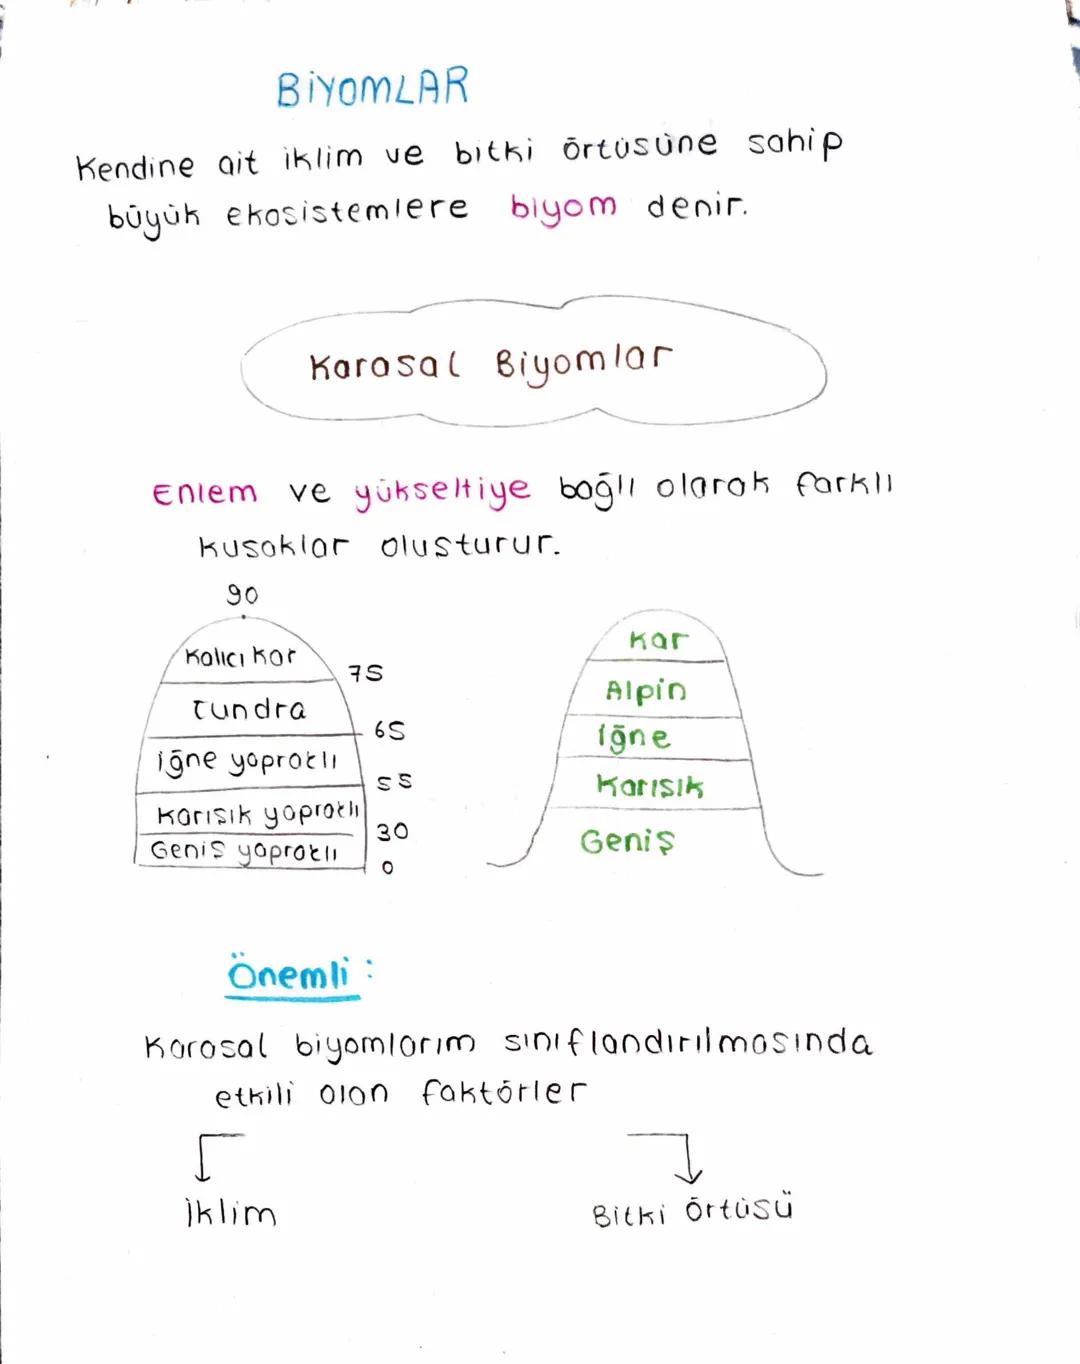 BİYOMLAR
Kendine ait iklim ve bitki örtüsüne sahip
büyük ekosistemlere biyom denir.
Karasal Biyomlar
Enlem ve yükseltiye bağlı olarak farklı
kusaklar olusturur.
90
Kalıcı kar
75
tundra
65
iğne yapraklı
55
Karışık yapraklı
30
Geniş yapraklı
0
Kar
Alpin
İğne
Karısık
Geniş
Önemli :
Karasal biyomlarım sınıflandırılmasında
etkili olan faktörler
İklim
Bitki Örtüsü